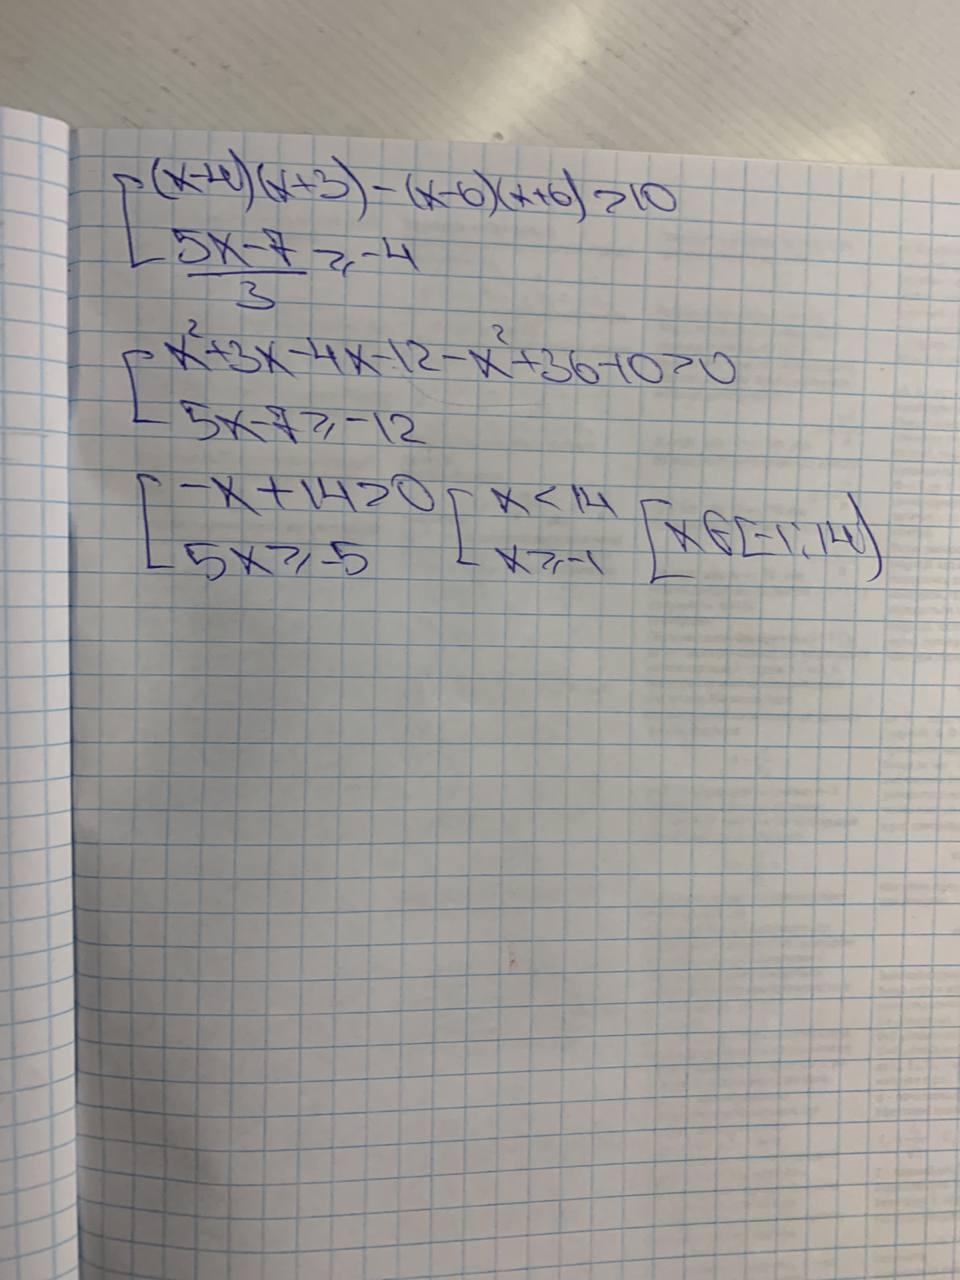 [ (x-4)(x+3) - (x-6)(x+6) > 10
5x-7/3 ⩾ -4
[ x²+3x-4x-12-x²+36-10>0
5x-7⩾-12
[ -x+14>0 [ x<14 [ x∈[-1; 14)
5x⩾-5 x⩾-1